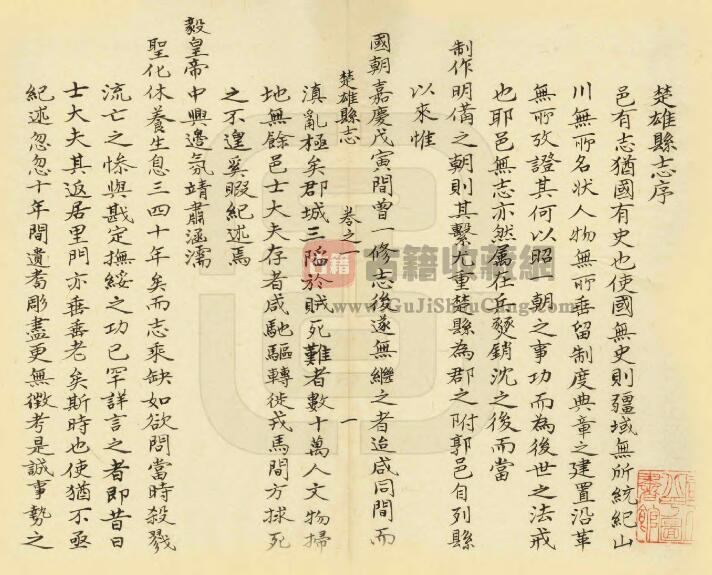 楚雄縣志序
邑有志猶國有史也使國無史則疆域無所統紀山
川無所名狀人物無所垂留制度典章之建置沿革
無所攷證其何以昭一朝之事功而為後世之法戒
也耶邑無志亦然屬在兵燹銷沈之後而當
制作明僃之朝則其繫尤重楚縣為郡之附郭邑自列縣
以來惟
國朝嘉慶戊寅間曾一修志後遂無繼之者迨咸同間而
楚雄縣志 卷之一 一
滇亂極矣郡城三陷於賊死難者數十萬人文物掃
地無餘邑士大夫存者咸馳驅轉徙戎馬間方捄死
之不遑奚暇紀述焉
毅皇帝中興邊氛靖肅涵濡
聖化休養生息三四十年矣而志乘缺如欲問當時殺戮
流亡之慘與戡定撫綏之功已罕詳言之者即昔日
士大夫其返居里門亦垂垂老矣斯時也使猶不亟
紀述忽忽十年間遺耉彫盡更無徵考是誠事勢之
古籍 古籍收藏網
www.GuJiShouCang.com